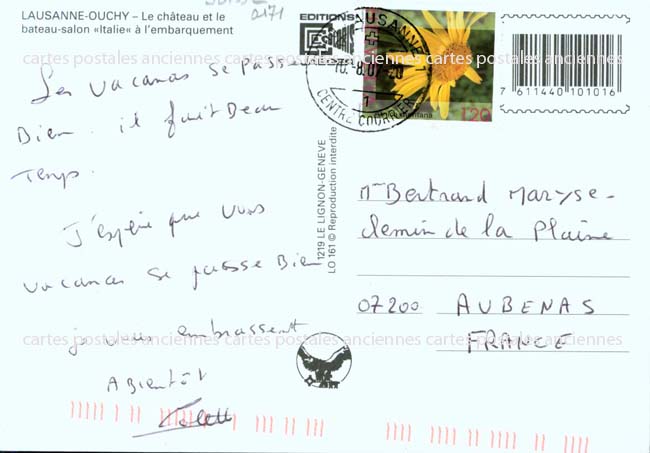 LAUSANNE-OUCHY – Le château et le
bateau-salon «Italie» à l'embarquement
2171
EDITIONS
LAUSANNE
10.-8.07
1
CENTRE COURRIER
120
7 611440 101016
cartes postales anciennes cartes postales anciennes cartes postales anciennes
Les vacanas se pass
Bien. il fait Beau
Temps.
J'espère que vous
vacanas se passse Bien
je vous embrassent
A Bientôt
1219 LE LIGNON-GENEVE
LO 161 © Reproduction interdite
Mme Bertrand Maryse-
chemin de la Plaine
07200 AUBENAS
FRANCE
cartes postales anciennes cartes postales anciennes cartes postales anciennes